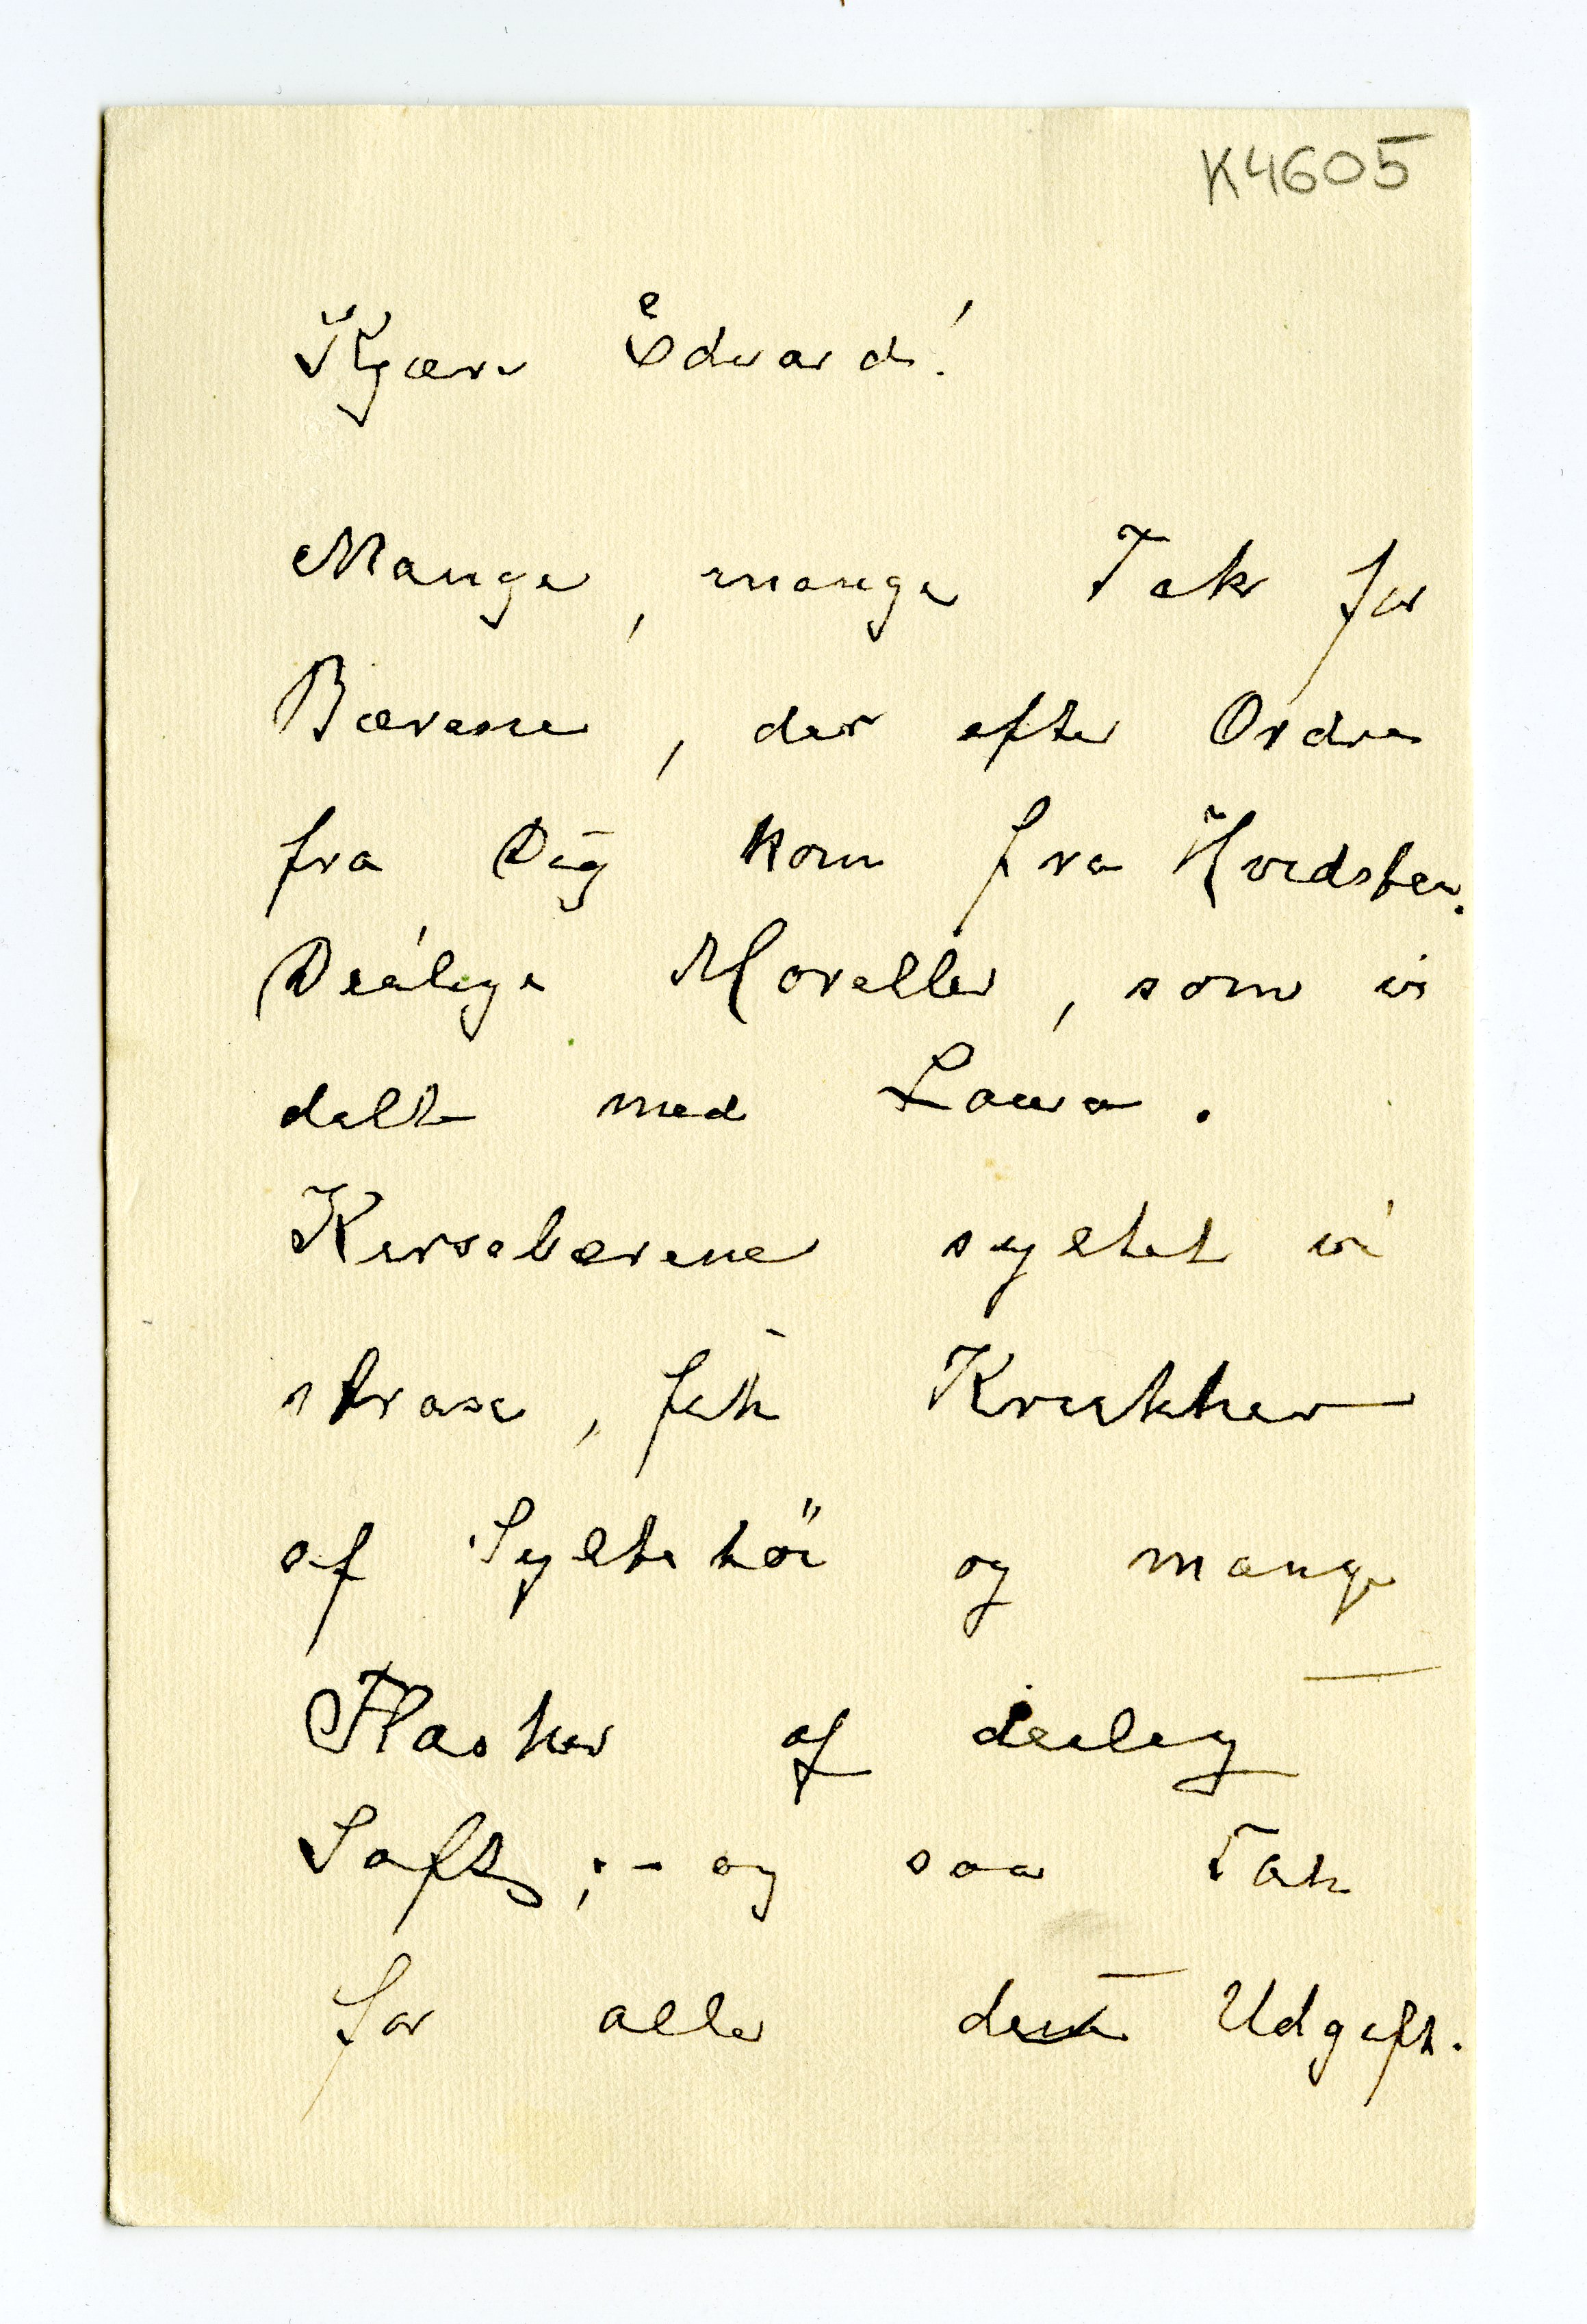 K4605
Kjære Edvard!
Mange, mange Tak for
Bærene, der efter Ordre
fra Dig kom fra Hvidsten.
Deilige Moreller, som vi
delte med Laura.
Kirsebærene syltet vi
strax, fik Krukker
af Syltetöi og mange
Flasker af deilig
Saft; - og saa Tak
for alle dine Udgift.